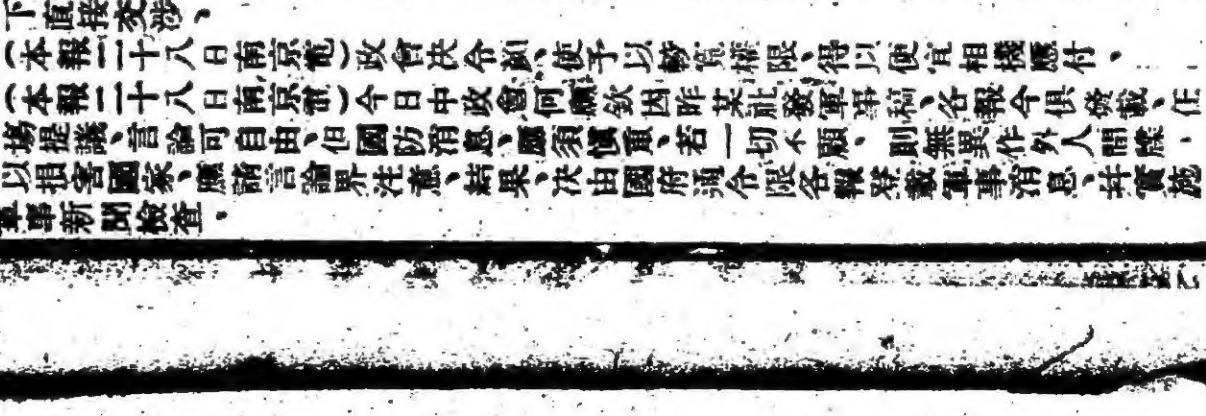 下直接交涉、
（本報二十八日南京電）政會決令顧、使予以較寬權限、得以便宜相機應付、
（本報二十八日南京電）今日中政會何應欽因昨某社發軍事稿、各報今俱登載、任
場提議、言論可自由、但國防消息、應須愼重、若一切不顧、則無異作外人間諜、
以損害國家、應請言論界注意、結果、決由國府通令限各報登載軍事消息、并實施
軍事新聞檢查。